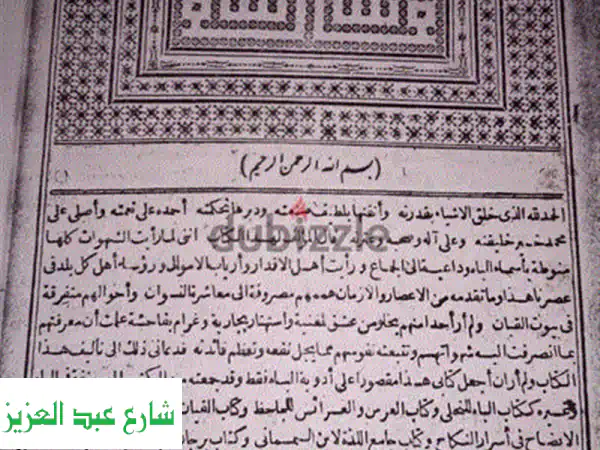 (بسم الله الرحمن الرحيم)
الحمد لله الذى خلق الاشياء بقدرته وأتقنها بلطف حكمته ودبرها بحكمته أحمده على نعمته وأصلى على
محمد خير خليقته وعلى آله وصحبه
dubizzle
اننى لما رأيت الشهوات كلها
منوطة بأسماء الباه وداعية الى الجماع ورأيت أهل الاقدار وأرباب الاموال ورؤساء أهل كل بلد فى
عصرنا هذا وما تقدمه من الاعصار والازمان هممهم مصروفة الى معاشرة النسوان وأحوالهم متفرقة
فى بيوت القيان ولم أر أحدا منهم يخلو من عشق لمغنية واستهتار بجارية وغرام بفاحشة علمت أن معرفتهم
بما انصرفت اليه شهواتهم وتتبعته نفوسهم مما يجل نفعه وتعظم فائدته فدعانى ذلك الى تأليف هذا
الكتاب ولم أر أن أجعل كتابى هذا مقصورا على أدوية الباه فقط وقد جمعته من الكتب
ككتاب الباه للنحلى وكتاب العرس والعرائس للجاحظ وكتاب القيان
الايضاح فى أسرار النكاح وكتاب جامع اللذة لابن السمسمانى وكتاب برجان
شارع عبد العزيز